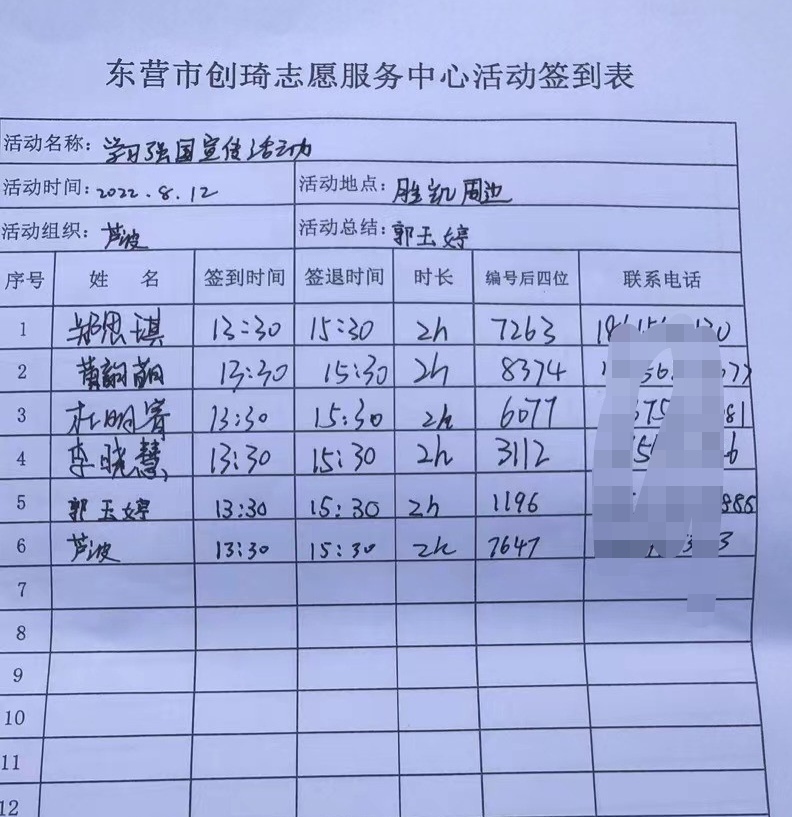 东营市创琦志愿服务中心活动签到表
活动名称：学习强国宣传活动
活动时间：2022.8.12 活动地点：胜凯周边
活动组织：芦波 活动总结：郭玉婷
序号 姓 名 签到时间 签退时间 时长 编号后四位 联系电话
1 郑思琪 13:30 15:30 2h 7263
2 13:30 15:30 2h 8374
3 杜明睿 13:30 15:30 2h 6077
4 李晓慧 13:30 15:30 2h 3112
5 郭玉婷 13:30 15:30 2h 1196
6 芦波 13:30 15:30 2h 7647
7
8
9
10
11
12